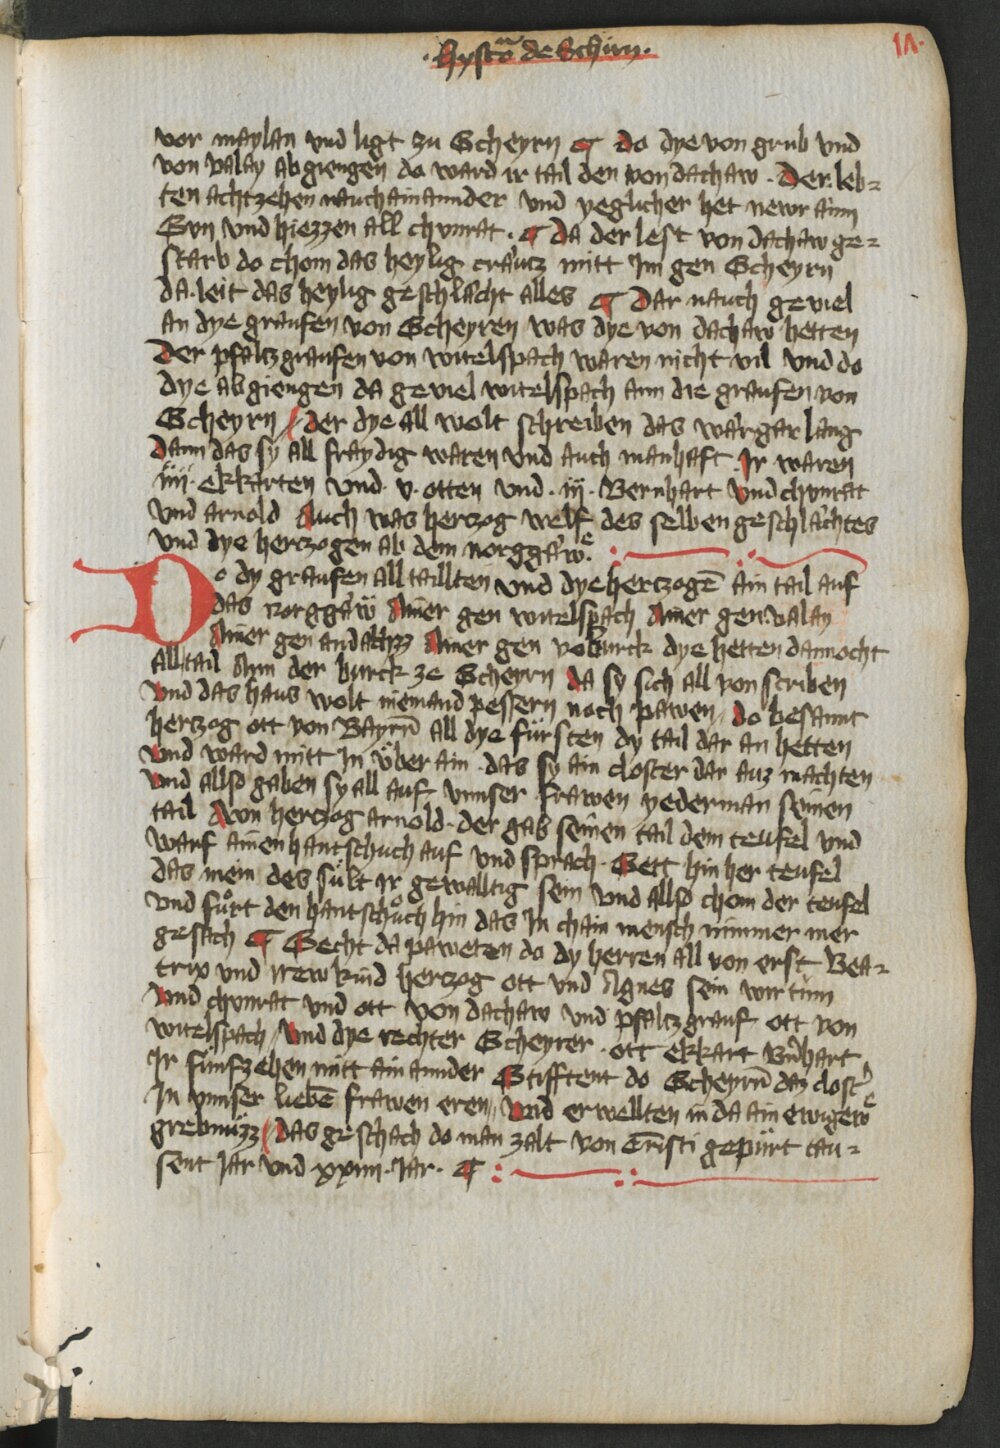 ·hysto᷑ de Schirn·
1Λ·
vor maylan vnd ligt zu Scheyrn ¶ do dye von grub vnd
von valay ab giengen do ward ir tail den von dachaw · Der leb⸗
ten achtzehen nauch ainannder vnd yeglicher het newr ainn
Sun vnd hiezzen all chunrat · ¶ Da der lest von dachaw ge⸗
starb do chom das heylig cräutz mitt Im gen Scheyrn
da leit das heylig geschlächt alles ¶ Dar nauch geviel
an dye graufen von Scheyren was dye von dachaw hetten
Der pfaltzgraufen von witelspach waren nicht vil vnd do
dye ab giengen da geviel witelspach ann die graufen von
Scheyrn / der dye all wolt schreiben das wär gar lang
dann das sy all fraydig waren vnd auch manhaft Ir waren
iiij · ekkarten vnd · v · otten vnd · iij · Bernhart vnd chunrat
vnd arnold Auch was hertzog welf des selben geschlächtes
vnd dye hertzogen ab dem norggäwe
Do dy graufen all taillten vnd dye hertzogē ain tail auf
das norggäw Ainer gen witelspach Ainer gen valay
Ainer gen andächzz Ainer gen voburck dye hetten dannocht
all tail Ann der burck ze Scheyrn da sy sich all von scriben
vnd das haus wolt niemand pessern noch pawen / do besannt
hertzog ott von Bayrn̄ all dye fürsten dy tail dar an hetten
vnd ward mitt In über ain das sy ain closter dar auz machten
vnd allso gaben sy all auf vnnser frawen yederman seinen
tail Avn hertzog arnold · der gab seinen tail dem teufel vnd
warf ainen hantschuch auf vnd sprach · Sett hin her teufel
das mein des sült Ir gewalltig sein vnd allso chom der teufel
vnd fůrt den hantschůch hin das In chain mensch nimmer mer
gesach ¶ Secht da paweten do dy herren all von erst Bea⸗
trix vnd irew kind hertzog ott vnd Agnes sein wirtinn
vnd chunrat vnd ott von dachaw vnd pfaltzgrauf ott von
witelspach / vnd dye rechter Scheyrer · ott ekkart Bn̄hart
Ir fünfzehen mitt ainannder Stifftent do Scheyrn̄ daz clost᷑
In vnnser liebē frawen eren / vnd erwellten in da ain ewigew
grebnüzz / das geschach do man zalt von Cristi gepürt tau⸗
sent Jar vnd xxiiii · Jar · ¶